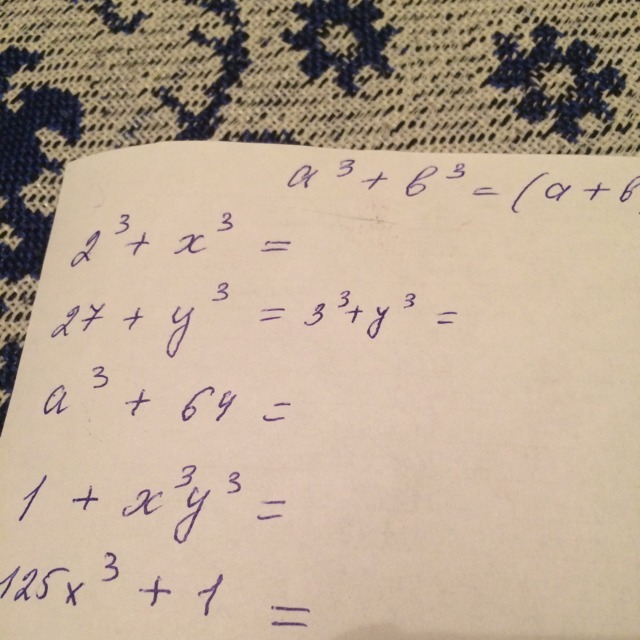 a³ + b³ = (a + b
2³ + x³ =
27 + y³ = 3³ + y³ =
a³ + 64 =
1 + x³y³ =
125x³ + 1 =